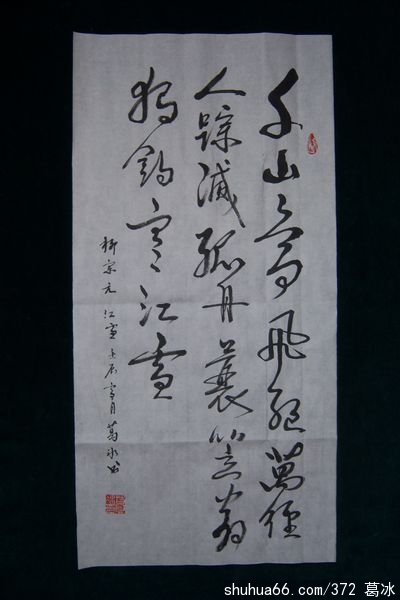 千山鳥飛絕萬徑
人踪滅孤舟蓑笠翁
獨釣寒江雪
柳宗元江雪壬辰月葛冰书
shuhua66.com/372 葛冰